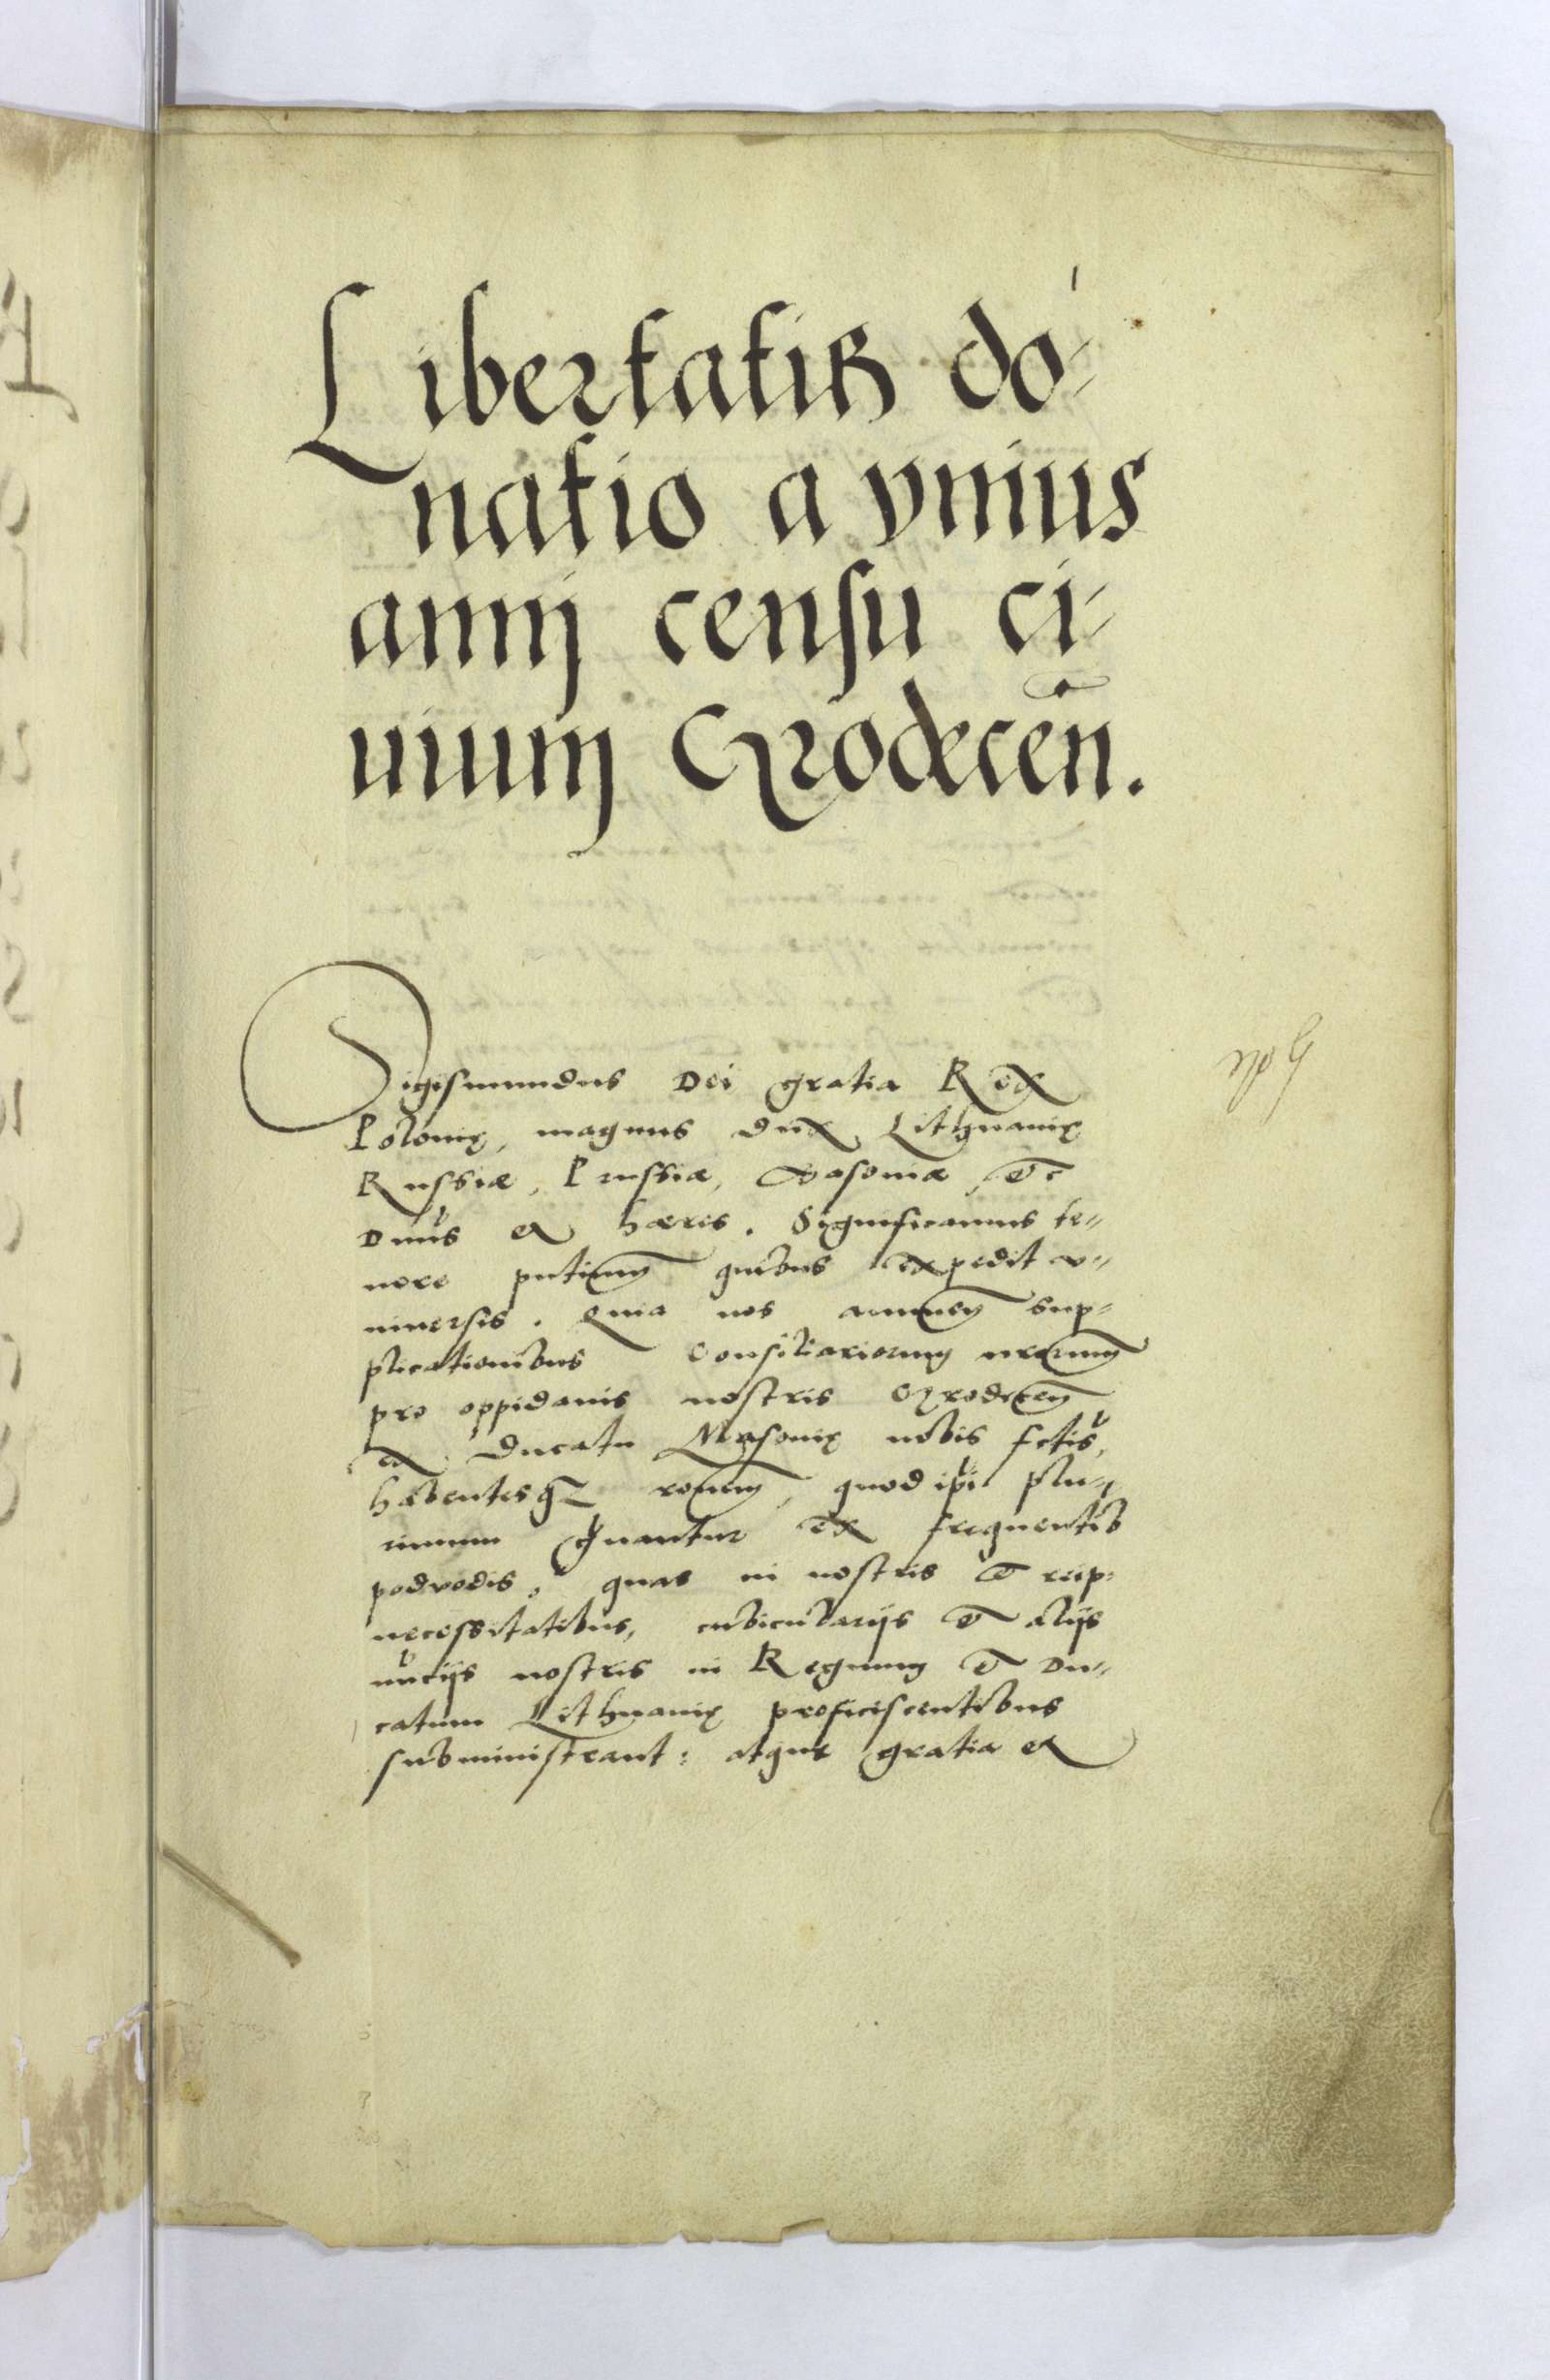 Libertatis do-
natio a vnius
annj censu ci-
uium Grodeceñ.
Sigismundus Dei gratia Rex
Polonię, magnus dux Lithuanię
Russiæ, Prussiæ, Masoviæ etc
Dnus et hæres. Significamus te-
nore pntium quibus expedit v-
niuersis. Quia nos annuen sup-
plicationibus Consiliariorum nrorum
pro oppidanis nostris Grodecen
in Ducatu Masovię nobis fctis,
habentesq ronem, quod ipi plu-
rimum grauantur ex frequentib
podvodis, quas in nostris et reip:
necessitatibus, cubiculariis et alijs
nuciis nostris in Regnum et Du-
catum Lithuanię proficiscentibus
subministrant: atque gratia et
No 9